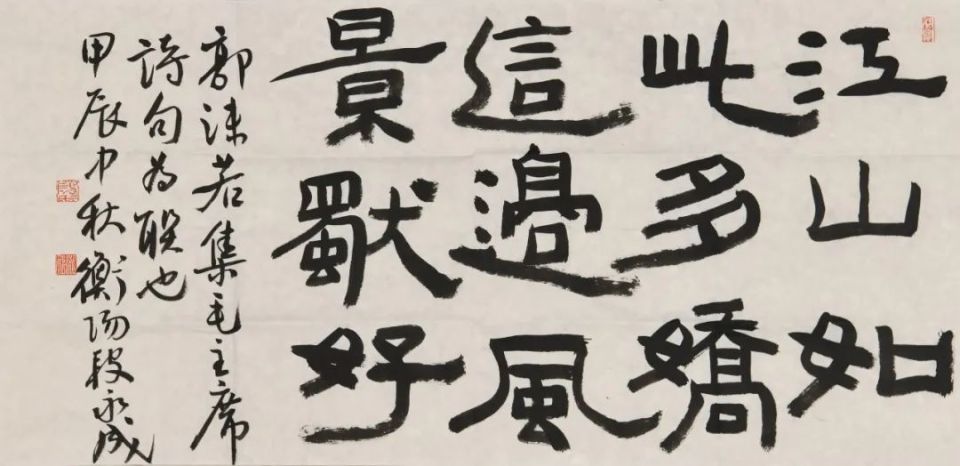 江山如
此多嬌
這邊風
景獨好
郭沫若集毛主席
詩句为联也
甲辰中秋衡陽段永成